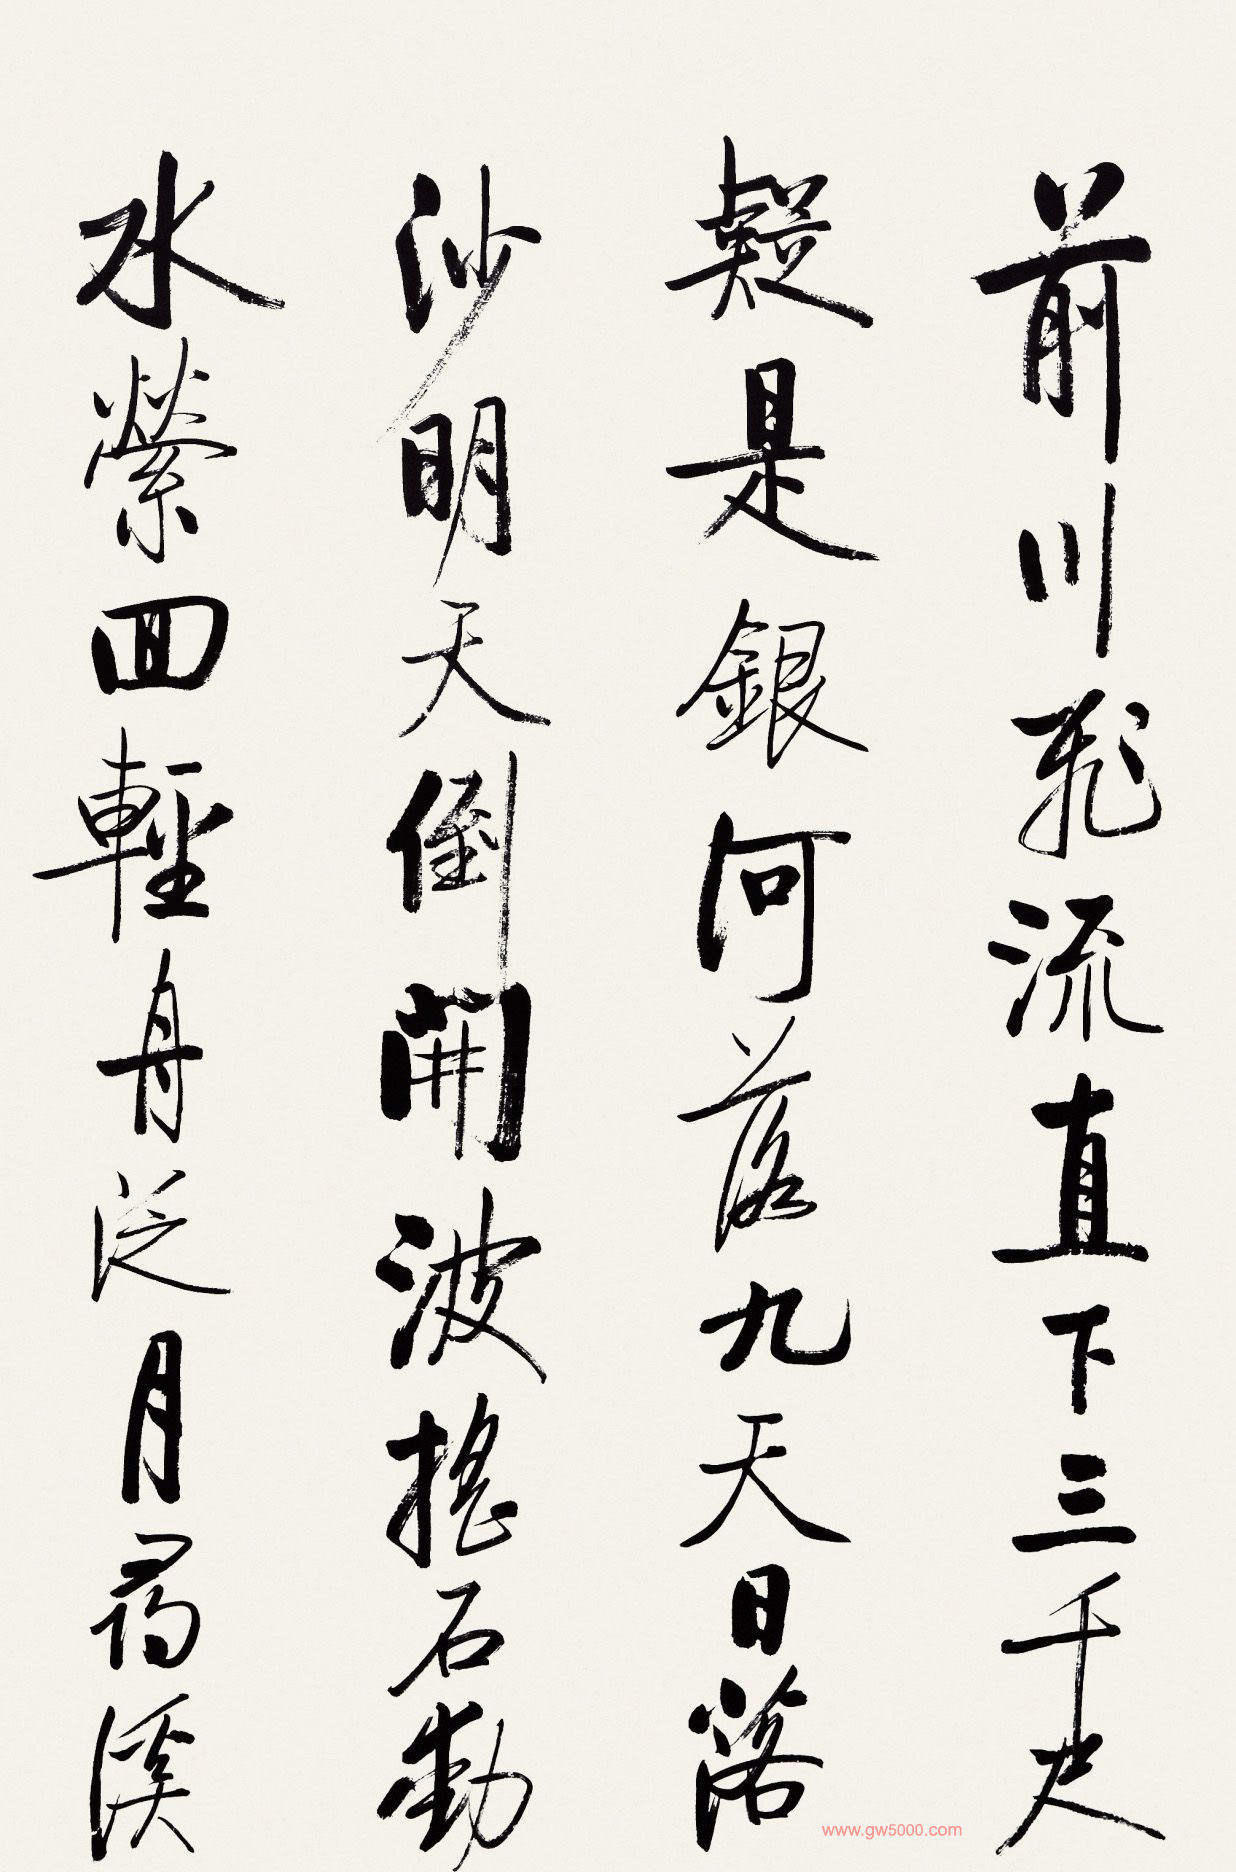 前川飛流直下三千尺
疑是銀河落九天日落
沙明天倒開波搖石動
水縈回輕舟泛月尋溪
www.gw5000.com